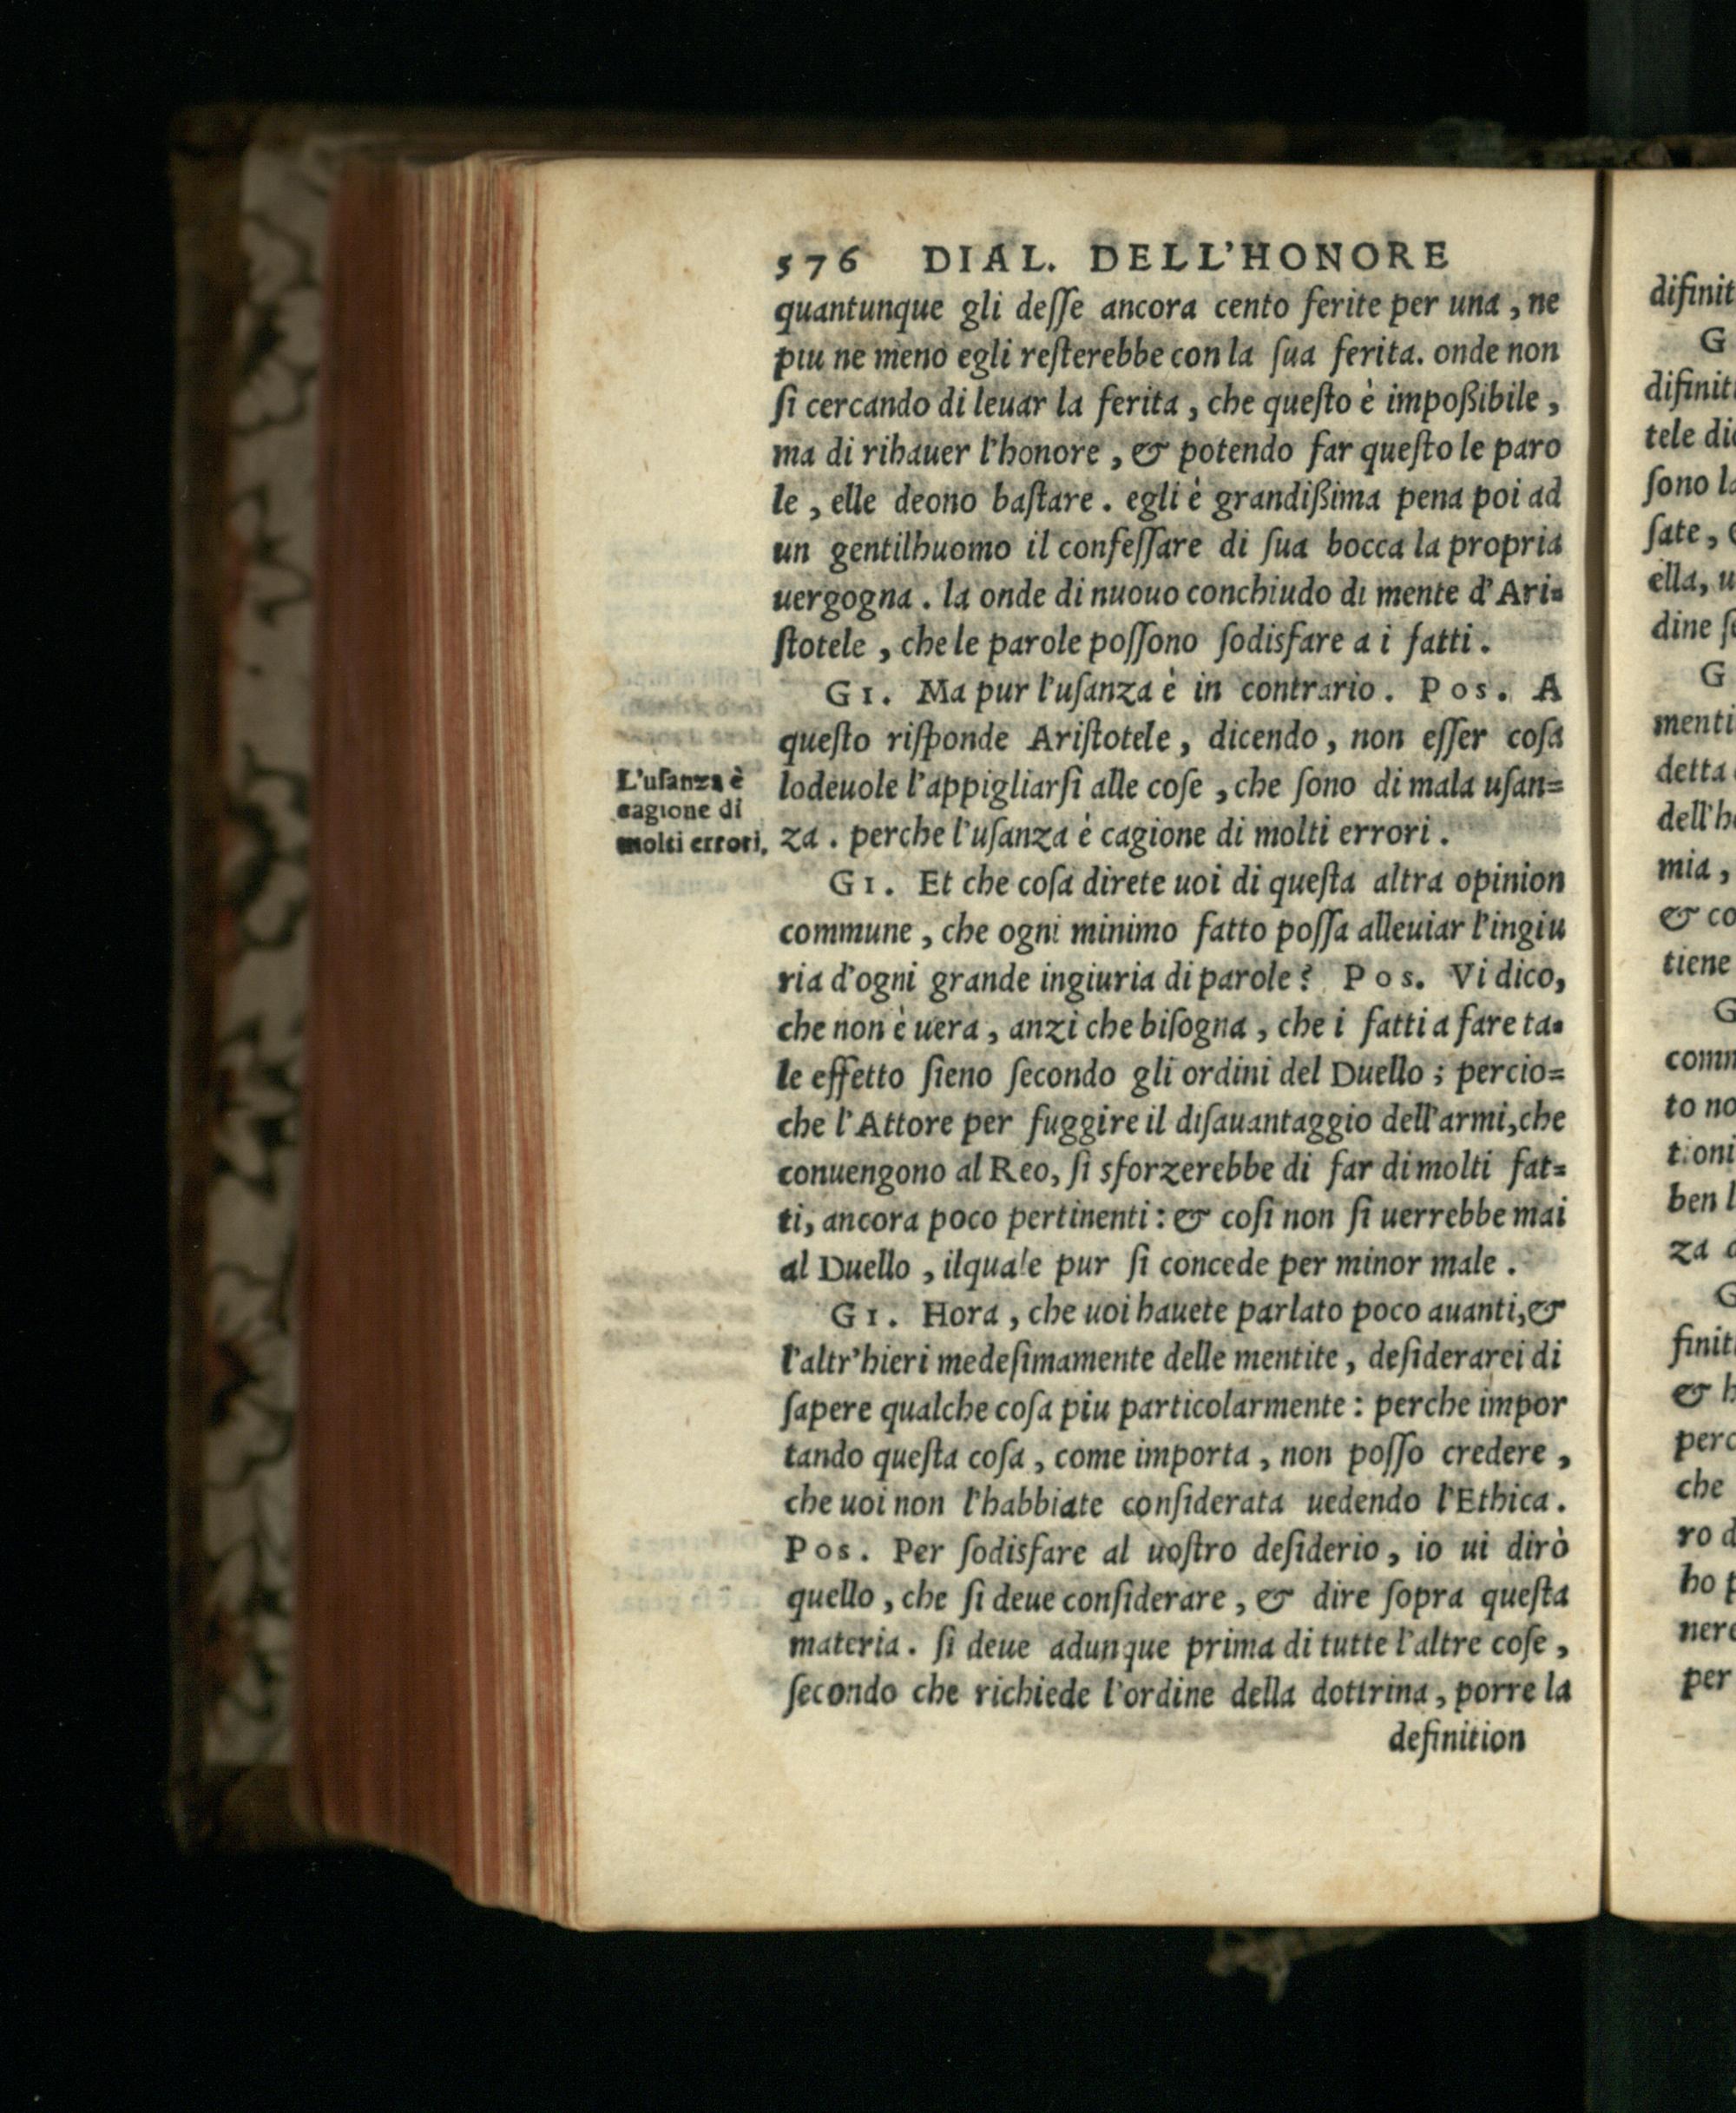 576 DIAL. DELL'HONORE
quantunque gli deſſe ancora cento ferite per una, ne
piu ne meno egli reſterebbe con la ſua ferita. onde non
ſi cercando di leuar la ferita, che queſto è impoßibile,
ma di rihauer l'honore, & potendo far queſto le paro
le, elle deono baſtare. egli è grandißima pena poi ad
un gentilhuomo il confeſſare di ſua bocca la propria
uergogna. la onde di nuouo conchiudo di mente d'Ari=
ſtotele, che le parole poſſono ſodisfare a i fatti.
GI. Ma pur l'uſanza è in contrario. Pos. A
queſto riſponde Ariſtotele, dicendo, non eſſer coſa
lodeuole l'appigliarſi alle coſe, che ſono di mala uſan=
za. perche l'uſanza è cagione di molti errori.
L'uſanza è
cagione di
molti errori.
GI. Et che coſa direte uoi di queſta altra opinion
commune, che ogni minimo fatto poſſa alleuiar l'ingiu
ria d'ogni grande ingiuria di parole? Pos. Vi dico,
che non è uera, anzi che biſogna, che i fatti a fare ta=
le effetto ſieno ſecondo gli ordini del Duello; percio=
che l'Attore per fuggire il diſauantaggio dell'armi, che
conuengono al Reo, ſi sforzerebbe di far di molti fat=
ti, ancora poco pertinenti: & coſi non ſi uerrebbe mai
al Duello, ilquale pur ſi concede per minor male.
GI. Hora, che uoi hauete parlato poco auanti, &
l'altr'hieri medeſimamente delle mentite, deſiderarei di
ſapere qualche coſa piu particolarmente: perche impor
tando queſta coſa, come importa, non poſſo credere,
che uoi non l'habbiate conſiderata uedendo l'Ethica.
Pos. Per ſodisfare al uoſtro deſiderio, io ui dirò
quello, che ſi deue conſiderare, & dire ſopra queſta
materia. ſi deue adunque prima di tutte l'altre coſe,
ſecondo che richiede l'ordine della dottrina, porre la
definition